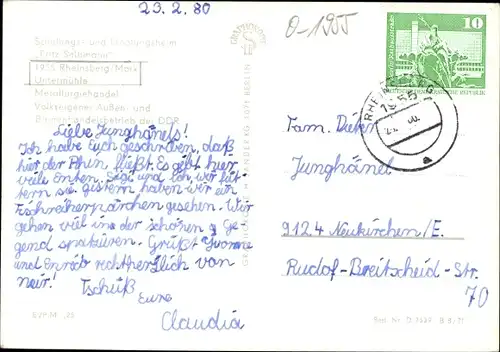 23.2.80
O-1955
Schulungs- und Erholungsheim
"Fritz Sallmann"
1955 Rheinsberg/Mark
Untermühle
Metallurgiehandel
Volkseigener Außen- und
Binnenhandelsbetrieb der DDR
10
RHEINSBERG
1955
a
Liebe Junghänels!
Ich habe Euch geschrieben, daß
hier der Rhin fließt. Es gibt hier
viele Enten. Sigi und ich, wir füt-
tern sie. gistern haben wir ein
Fischreiherpärchen gesehen. Wir
gehen viel ins der schönen Ge
gend spatzieren. Grüßt Yvonne
und Enrico rechtherzlich von
mir! Tschüß
Eure
Claudia
Fam. Dieter
Junghänel
9124 Neukirchen/E.
Rudof-Breitscheid-Str.
70
EVP M -,25
Best.-Nr.